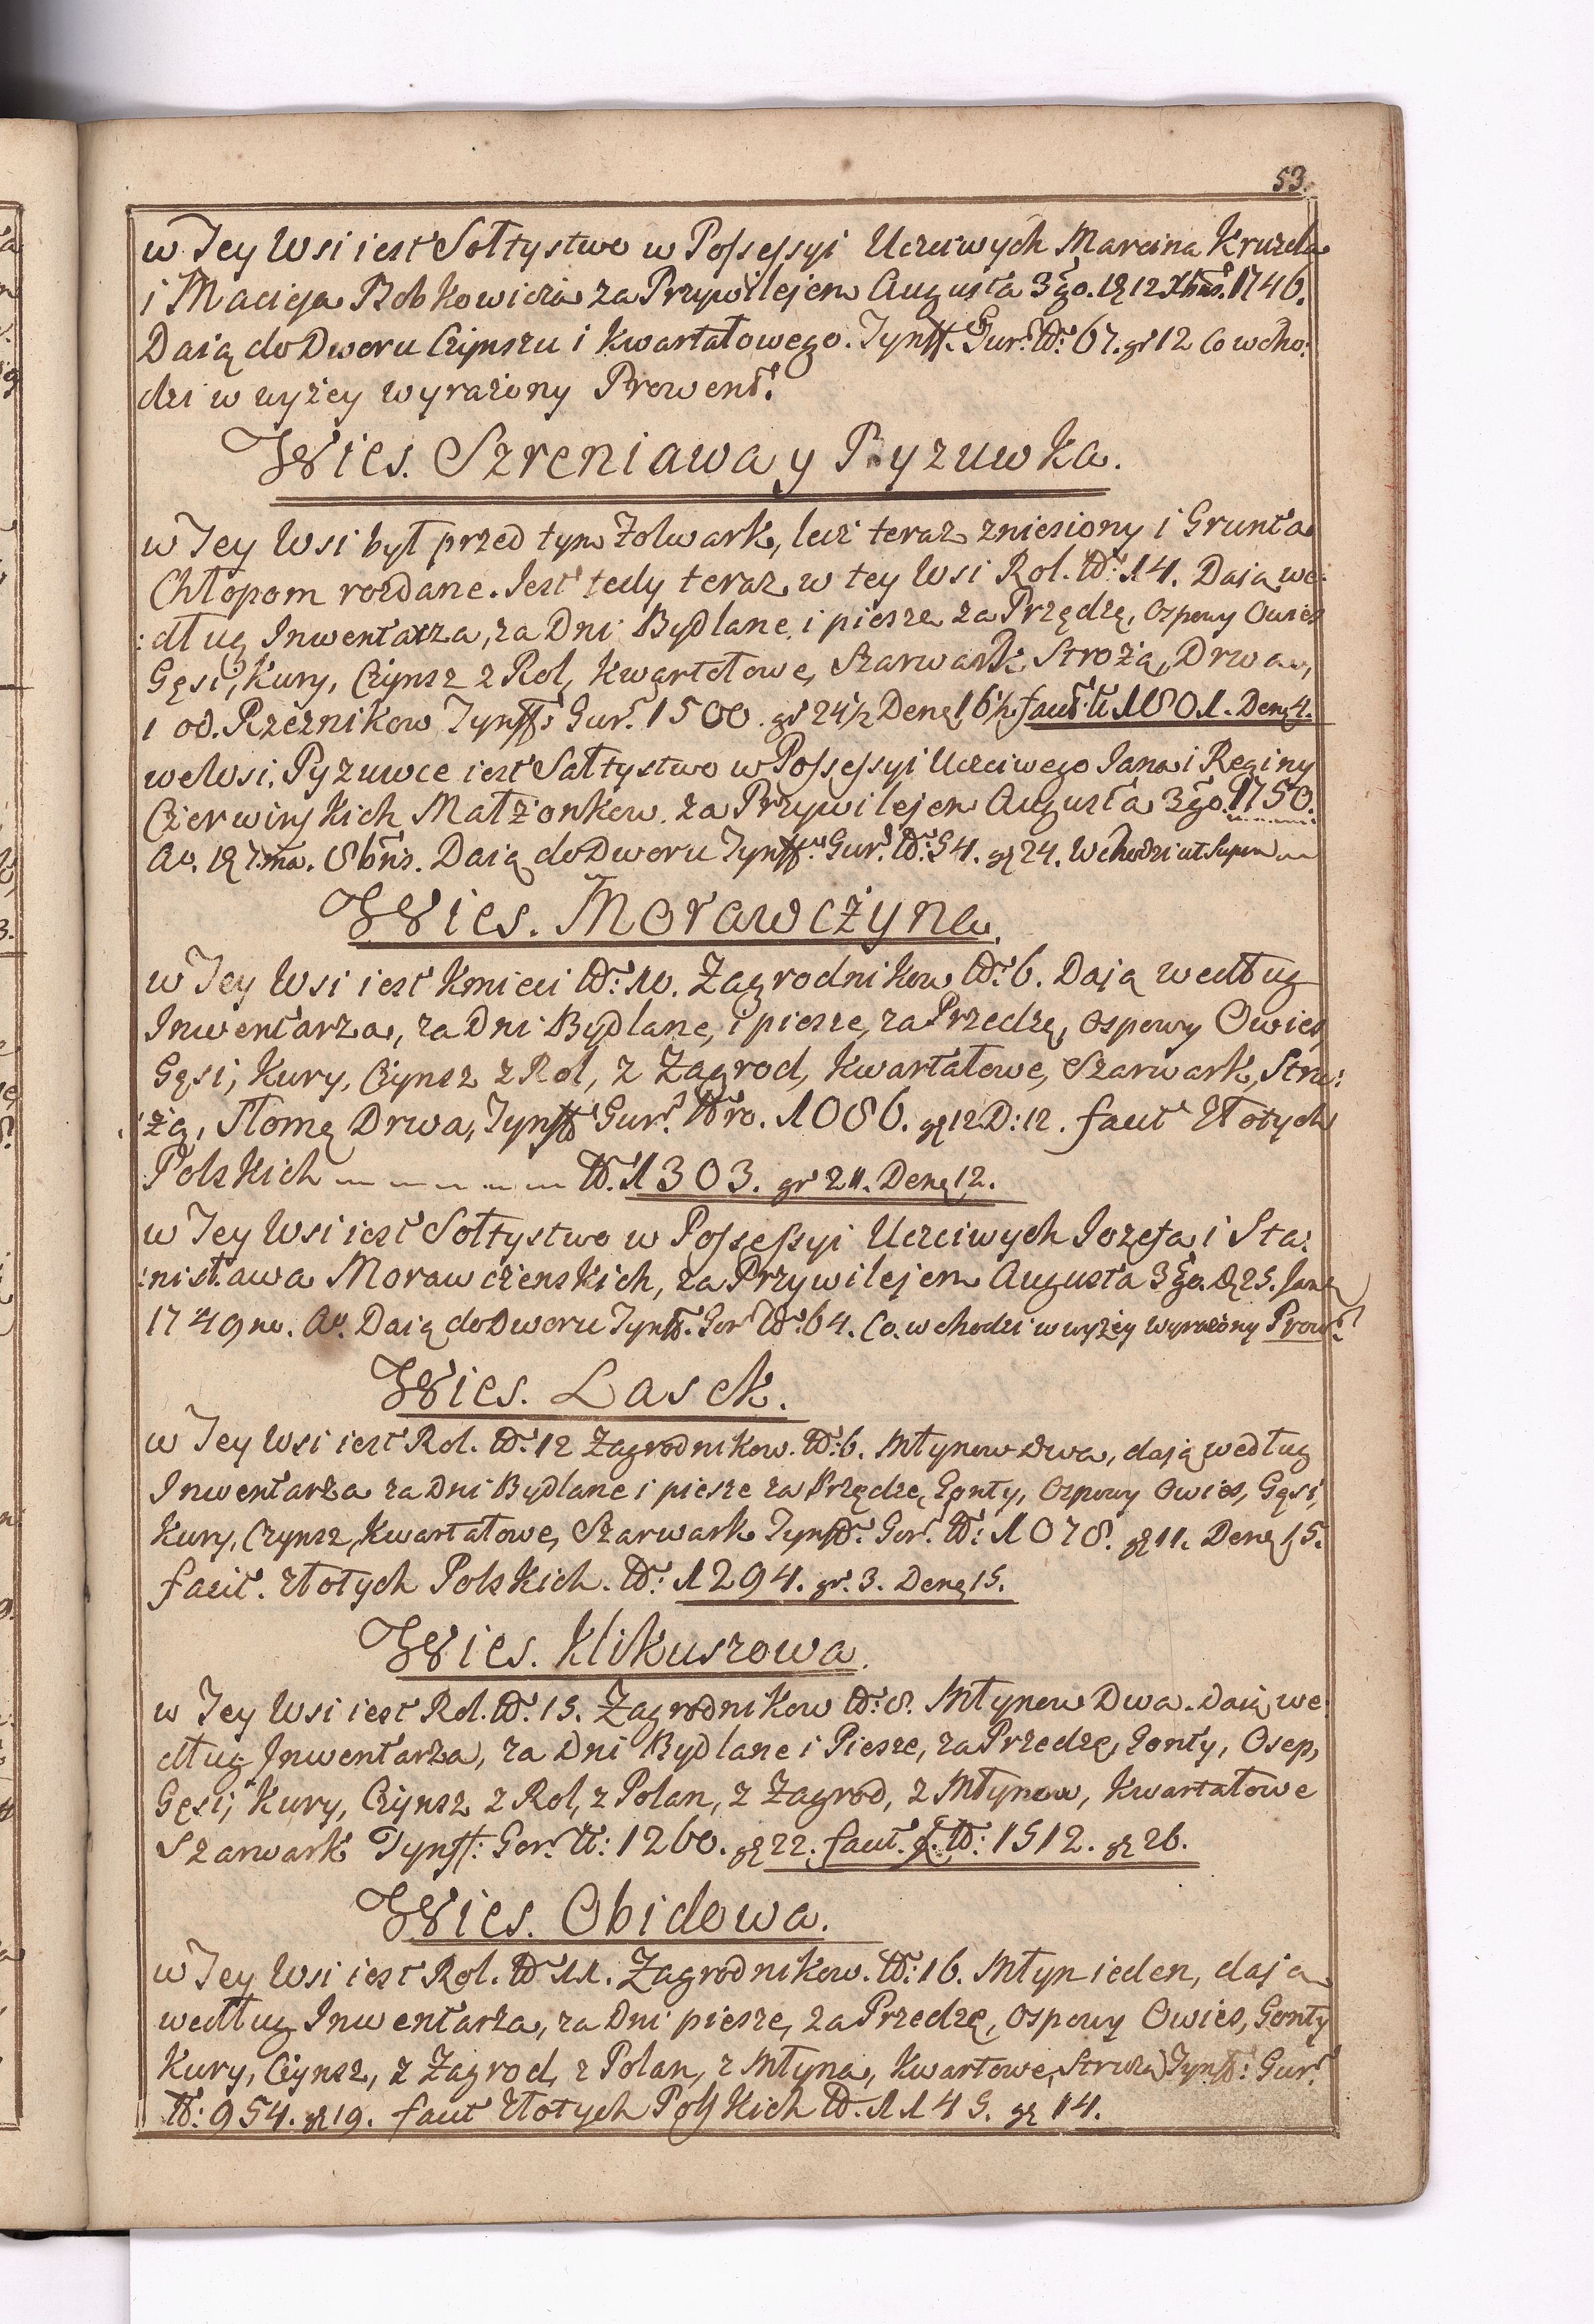 53.
w Tey Wsi iest Sołtystwo w Possessyi Uczciwych Marcina Kruzela
i Macieja Bobkowicza za Przywilejem Augusta 3go. 12 Xbris. 1746.
Daią do Dworu Czynszu i Kwartałowego. Tynff. Gur. No: 67. gr 12 Co wcho:
dzi w wyżey wyrażony Prowent.
Wies. Szreniawa y Pyzuwka.
w Tey Wsi był przed tym Folwark, lecz teraz zniesiony i Grunta
Chłopom rozdane. Jest tedy teraz w tey Wsi Rol. No: 14. Daią we:
:dług Inwentarza, za Dni Bydlane i piesze za Przędzę, Ospowy Owies
Gęsi, Kury, Czynsz z Rol, Kwartołowe, Szarwark, Strożą, Drwa,
i od Rzeznikow Tynff: Gur. 1500. gr 24½ Den. 16½ facit 1801. Den 4.
we Wsi Pyzuwce iest Sałtystwo w Possessyi Uczciwego Jana i Reginy
Czerwinskich Małżonkow za Przywilejem Augusta 3go. 1750.
Ao. 7ma. 8bris. Daią do Dworu Tynff. Gur. No: 54. gr 24. Wchodzi ut Supra
Wies. Morawczyna.
w Tey Wsi iest Kmieci No: 10. Zagrodnikow No: 6. Dają według
Inwentarza, za Dni Bydlane, i piesze, za Przedzę, Ospowy Owies,
Gęsi, Kury, Czynsz z Rol, z Zagrod, Kwartałowe, Szarwark, Stru:
:żą, Słomę Drwa, Tynff Gur. Nro. 1086. gr 12 D: 12. facit Złotych
Polskich No. 1303. gr 21. Den 12.
w Tey Wsi iest Sołtystwo w Possessyi Uczciwych Iozefa i Sta:
:nisława Morawczenskich, za Przywilejem Augusta 3go. D. 25. Jan
1749no. Ao. Daią do Dworu Tynff. Gor No: 64. Co. wchodzi w wyżey wyrażony Prow:
Wies. Lasek.
w Tey Wsi iest Rol. No: 12 Zagrodnikow. No: 6. Młynow Dwa, dają według
Inwentarza za Dni Bydlane i piesze za Przędze, Gonty, Ospowy Owies, Gęsi,
Kury, Czynsz, Kwartałowe, Szarwark Tynff. Gor. No: 1078. gr 11. Den 15.
facit. Złotych Polskich. No: 1294. gr. 3. Den 15.
Wies. Klikuszowa.
w Tey Wsi iest Rol. No: 15. Zagrodnikow No: 8. Młynow Dwa. Daią we:
dług Inwentarza, za Dni Bydlane i Piesze, za Przedzę, Gonty, Osep,
Gęsi, Kury, Czynsz z Rol, z Polan, z Zagrod, z Młynow, Kwartałowe
Szarwark Tynff: Gor. No: 1260. gr 22. facit. No: 1512. gr 26.
Wies. Obidowa.
w Tey Wsi iest Rol. No 11. Zagrodnikow. No: 16. Młyn ieden, dają
według Inwentarza, za Dni piesze, za Przedzę, Ospowy Owies, Gonty
Kury, Czynsz, z Zagrod, z Polan, z Młyna, Kwartowe, Struża, Tynff: Gur.
No: 954. gr 19. facit Złotych Polskich No. 1145. gr 14.